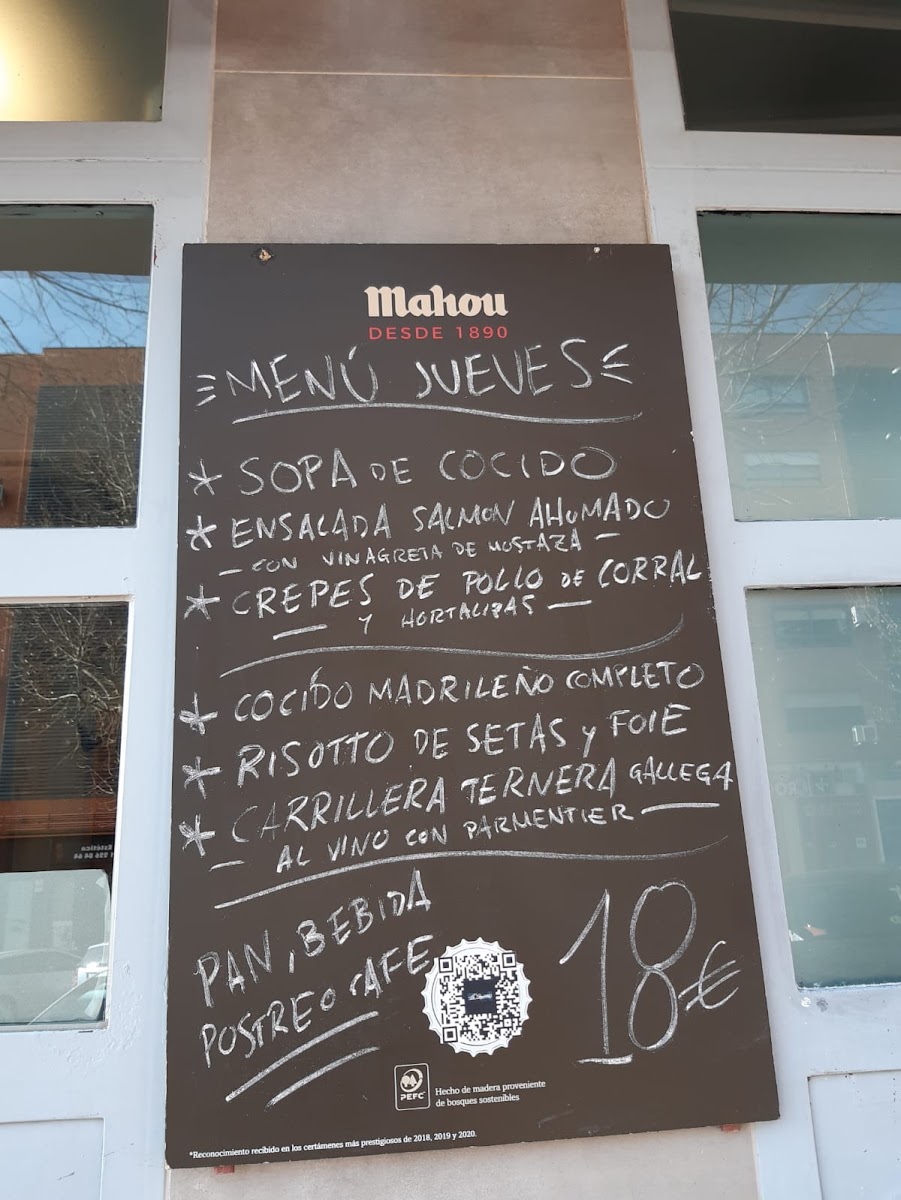 Mahou
DESDE 1890
MENÚ JUEVES
* SOPA DE COCIDO
* ENSALADA SALMON AHUMADO
- CON VINAGRETA DE MOSTAZA -
* CREPES DE POLLO DE CORRAL
- Y HORTALIZAS -
* COCIDO MADRILEÑO COMPLETO
* RISOTTO DE SETAS y FOIE
* CARRILLERA TERNERA GALLEGA
- AL VINO CON PARMENTIER -
PAN, BEBIDA
POSTRE O CAFE
18€
PEFC
Hecho de madera proveniente
de bosques sostenibles
*Reconocimiento recibido en los certámenes más prestigiosos de 2018, 2019 y 2020.